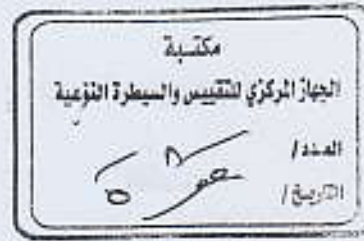 مكتسبة
الجهاز المركزي للتقييس والسيطرة النوعية
العدد /
التاريخ /